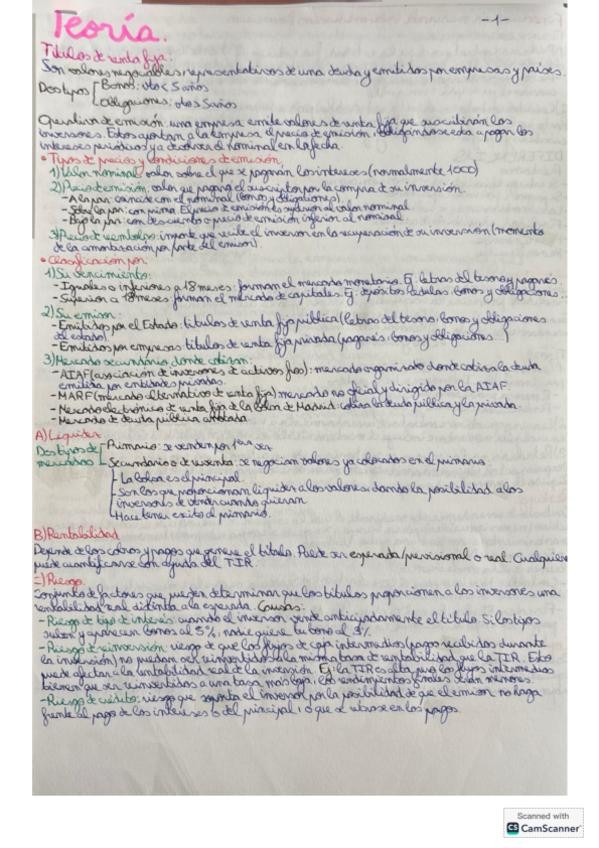 -1-
Teoría.
Títulos de renta fija:
Son valores negociables, representativos de una deuda y emitidos por empresas y países.
Dos tipos
Bonos: vto < 5 años
Obligaciones: vto > 5 años
Operativa de emisión: una empresa emite valores de renta fija que suscribirán los
inversores. Estos aportan a la empresa el precio de emisión, obligándose esta a pagar los
intereses periódicos y a devolver el nominal en la fecha.
• Tipos de precios y condiciones de emisión.
1) Valor nominal: valor sobre el que se pagarán los intereses (normalmente 1000)
2) Precio de emisión: valor que pagará el suscriptor por la compra de su inversión.
- A la par: coincide con el nominal (bonos y obligaciones)
- Sobre la par: con prima. El precio de emisión es superior al valor nominal
- Bajo la par: con descuento o precio de emisión inferior al nominal.
3) Precio de reembolso: importe que recibe el inversor en la recuperación de su inversión (momento
de la amortización por parte del emisor).
• Clasificación por:
1) Su vencimiento:
- Iguales o inferiores a 18 meses: forman el mercado monetario. Ej: letras del tesoro y pagarés
- Superior a 18 meses: forman el mercado de capitales. Ej: depósitos, cédulas, bonos y obligaciones...
2) Su emisor:
- Emitidos por el Estado: títulos de renta fija pública (letras del tesoro, bonos y obligaciones
del estado)
- Emitidos por empresas: títulos de renta fija privada (pagarés, bonos y obligaciones...)
3) Mercado secundario donde cotizan:
- AIAF (asociación de inversores de activos fijos): mercado organizado donde cotiza la deuda
emitida por entidades privadas.
- MARF (mercado alternativo de renta fija) mercado no oficial y dirigido por la AIAF.
- Mercado electrónico de renta fija de la bolsa de Madrid: cotiza la deuda pública y la privada.
- Mercado de deuda pública anotada.
A) Liquidez
Dos tipos de
mercados
Primario: se venden por 1era vez
Secundario o de reventa: se negocian valores ya colocados en el primario.
- La bolsa es el principal.
- Son los que proporcionan liquidez a los valores, dando la posibilidad a los
inversores de vender cuando quieran
- Hace tener éxito al primario.
B) Rentabilidad
Depende de los cobros y pagos que genere el título. Puede ser esperada/previsional o real. Cualquiera
puede cuantificarse con ayuda del TIR.
C) Riesgo.
Conjunto de factores que pueden determinar que los títulos proporcionen a los inversores una
rentabilidad real distinta a la esperada. Causas:
- Riesgo de tipo de interés: cuando el inversor vende anticipadamente el título. Si los tipos
suben y aparecen bonos al 5%, nadie quiere tu bono al 3%.
- Riesgo de reinversión: riesgo de que los flujos de caja intermedios (pagos recibidos durante
la inversión) no puedan ser reinvertidos a la misma tasa de rentabilidad que la TIR. Esto
puede afectar a la rentabilidad real de la inversión. Ej: la TIR es alta, pero los flujos intermedios
tienen que ser reinvertidos a una tasa más baja, los rendimientos finales serán menores.
- Riesgo de crédito: riesgo que soporta el inversor por la posibilidad de que el emisor no haga
frente al pago de los intereses o del principal, o que se retrase en los pagos.
Scanned with
CS CamScanner